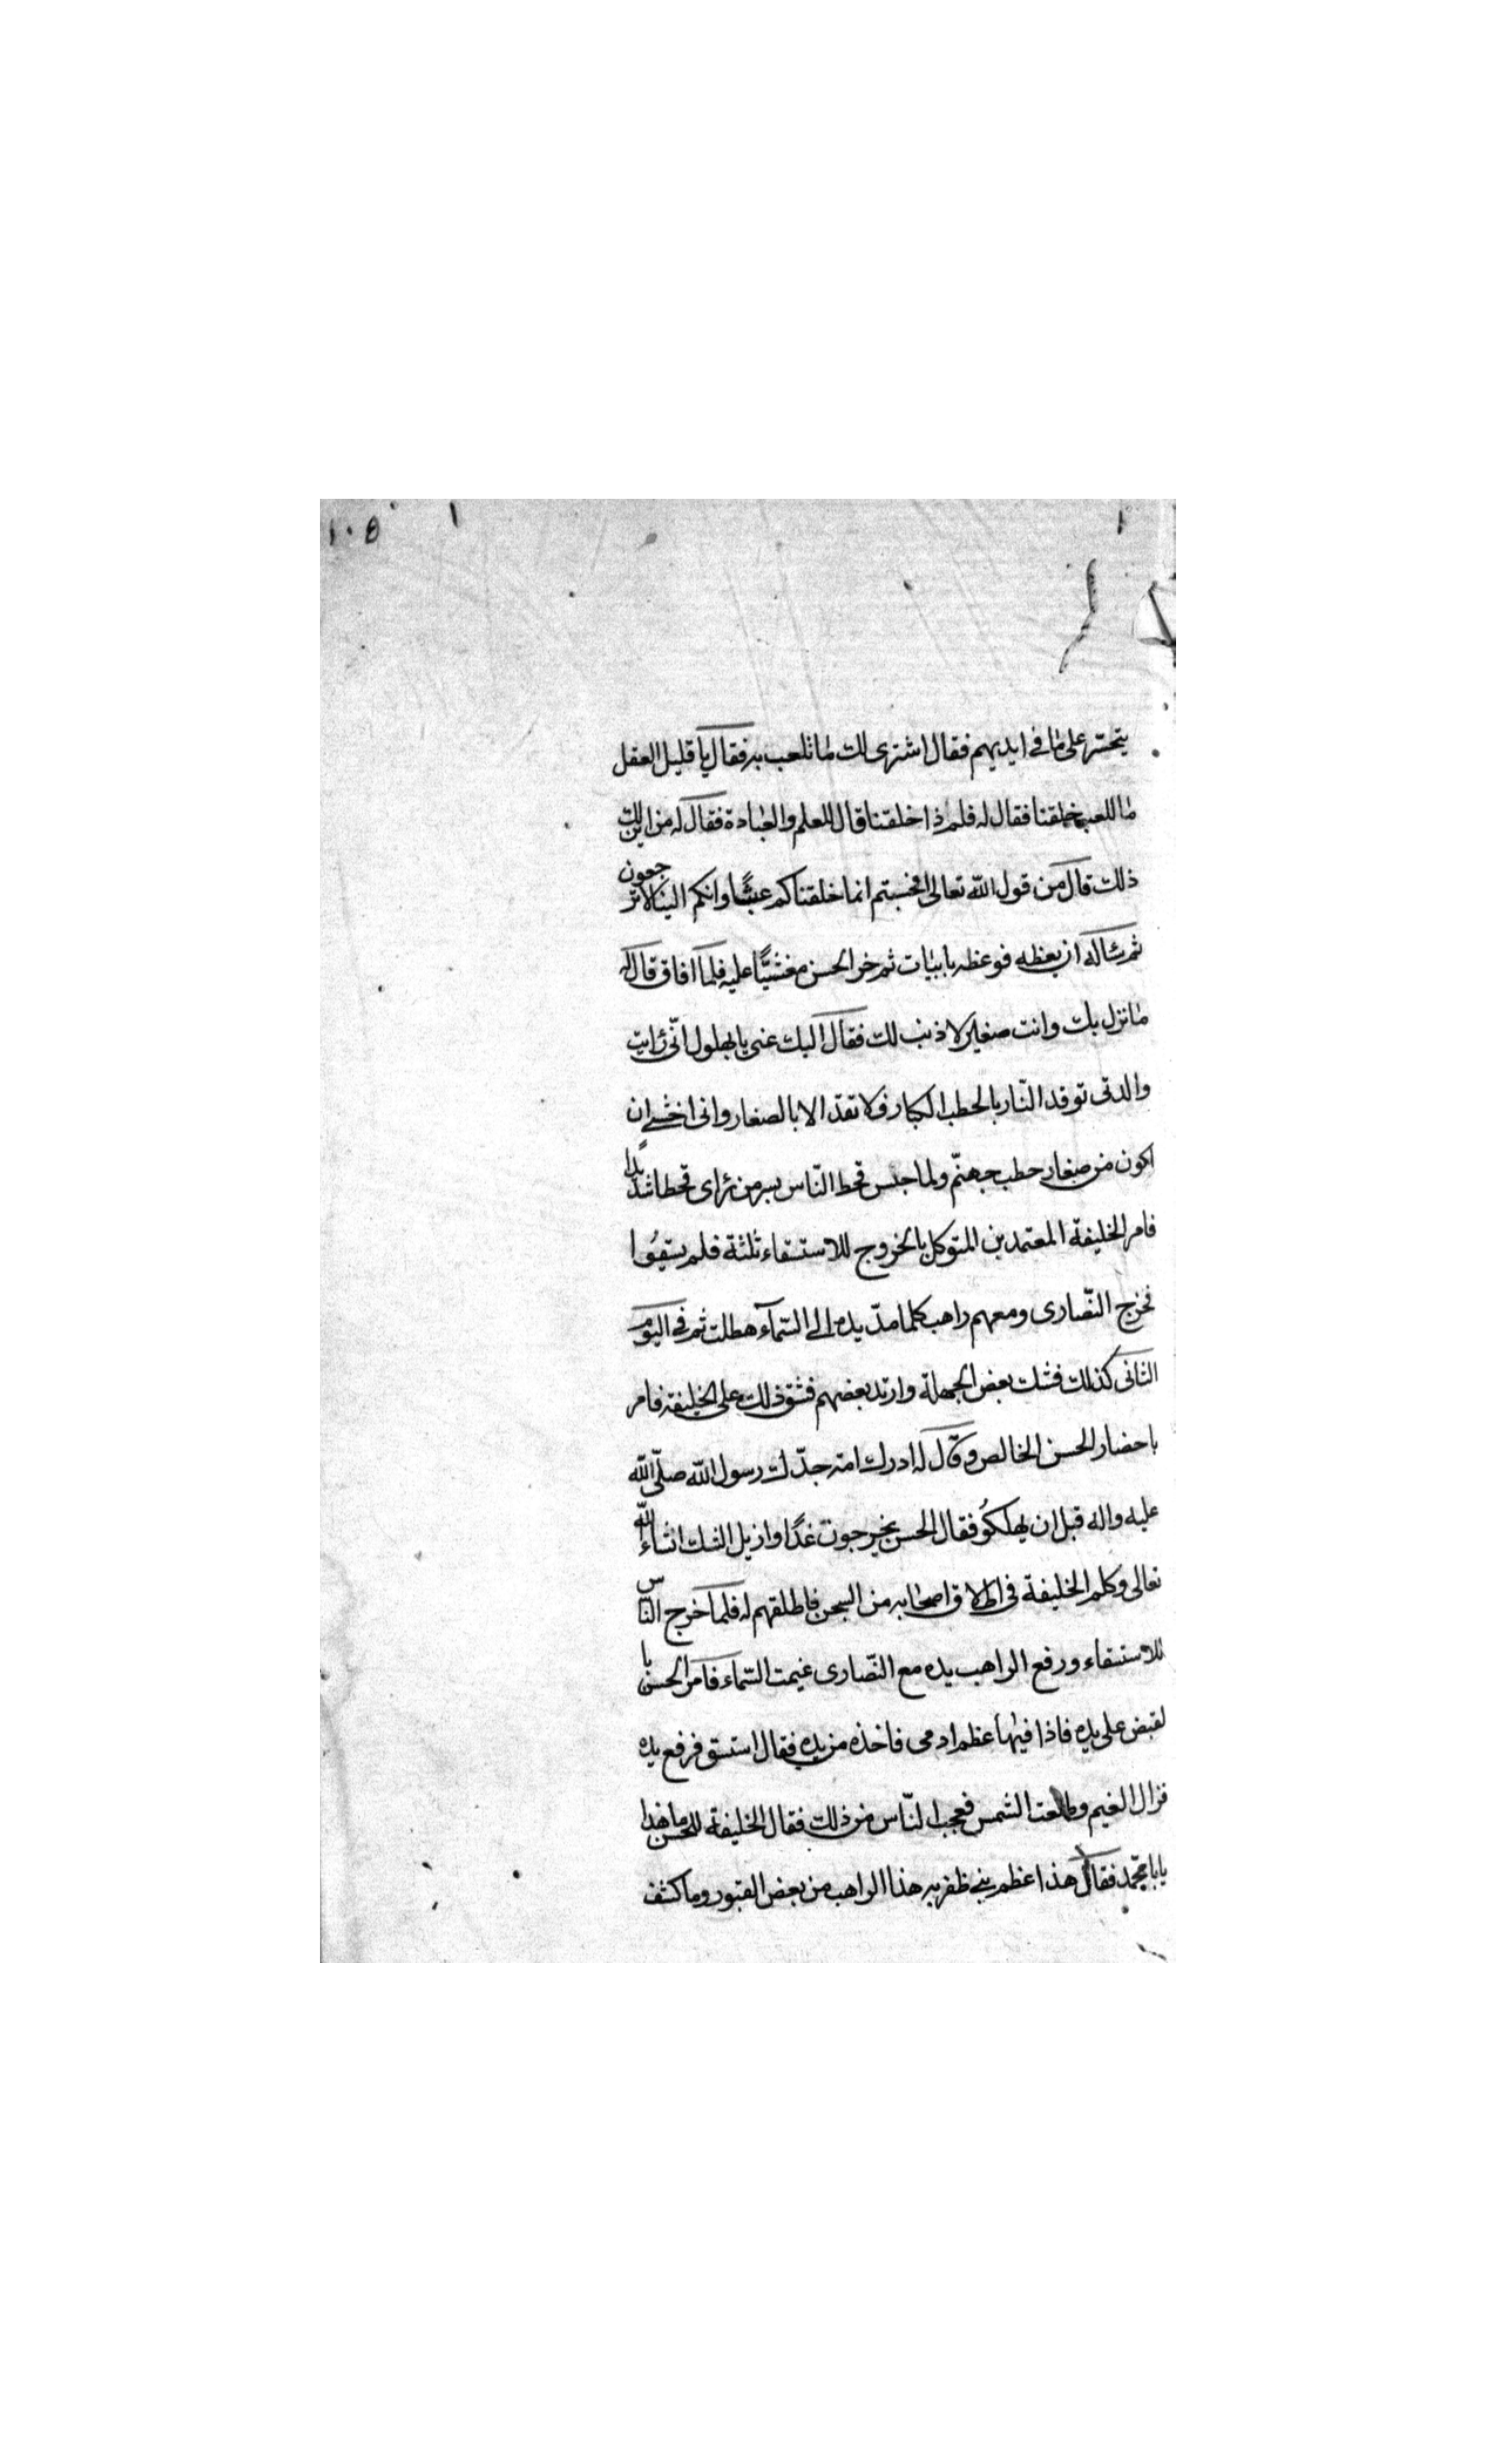 ١٠٥
يتحسّر على ما فى ايديهم فقال اشترى لك ما تلعب به فقال يا قليل العقل
ما للعب خلقنا فقال له فلم ذا خلقنا قال للعلم والعبادة فقال له من اين لك
ذلك قال من قول الله تعالى افحسبتم انما خلقناكم عبثًا وانكم الينا لا ترجعون
ثم سئاله ان يعظه فوعظه بابيات ثم خر الحسن مغشيًّا عليه فلما افاق قال له
ما نزل بك وانت صغير لا ذنب لك فقال اليك عنى يا بهلول انّى رايت
والدتى توقد النّار بالحطب الكبار فلا تقد الا بالصغار وانى اخشى ان
اكون من صغار حطب جهنّم ولما حبس قحط النّاس بسر من راى قحطا شديدًا
فامر الخليفة المعتمد بن المتوكل بالخروج للاستسقاء ثلثة فلم يسقوا
فخرج النّصارى ومعهم راهب كلما مدّ يده الى السّمآء هطلت ثم فى اليوم
الثانى كذلك فشك بعض الجهلة وارتد بعضهم فشق ذلك على الخليفة فامر
باحضار الحسن الخالص وقال له ادرك امة جدّك رسول الله صلّى الله
عليه واله قبل ان يهلكُو فقال الحسن يخرجون غدًا وازيل الشك انشاء الله
تعالى وكلم الخليفة فى اطلاق اصحابه من السجن فاطلقهم له فلما خرج النّاس
للاستسقاء ورفع الراهب يده مع النّصارى غيمت السّماء فامر الحسن با
لقبض على يده فاذا فيها عظم ادمى فاخذه من يده فقال استسق فرفع يده
فزال الغيم وطلعت الشمس فعجب النّاس من ذلك فقال الخليفة للحسن ما هذا
يا با محمّد فقال هذا عظم نبى ظفر به هذا الراهب من بعض القبور وما كشف